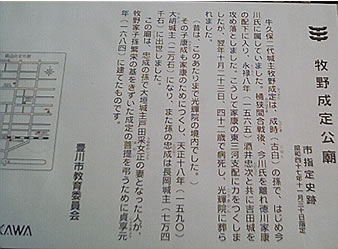 牧野成定公廟
市指定史跡
昭和四十七年十一月三十日指定
牛久保二代城主牧野成定は、成時(古白)の孫で、はじめ今
川氏に属していました。桶狭間合戦後、今川氏を離れ徳川家康
の配下に入り、永禄八年(一五六五)酒井忠次と共に吉田城を
攻め落としました。こうして家康の東三河支配に力をつくしま
したが、翌年十月二十三日、四十二歳で病死し、光輝院に葬ら
れました。
(昔は、このあたりまで光輝院の境内でした。)
その子康成も家康のために力をつくし、天正十八年(一五九〇)
大胡城主(二万石)になり、また孫の忠成は長岡城主(七万四
千石)に出世しました。
この廟は、忠成の孫で大垣城主戸田采女正の妻となった人が、
牧野家子孫繁栄の基をきずいた成定の菩提を弔うために貞享元
年(一六八四)に建てたものです。
豊川市教育委員会
KAWA